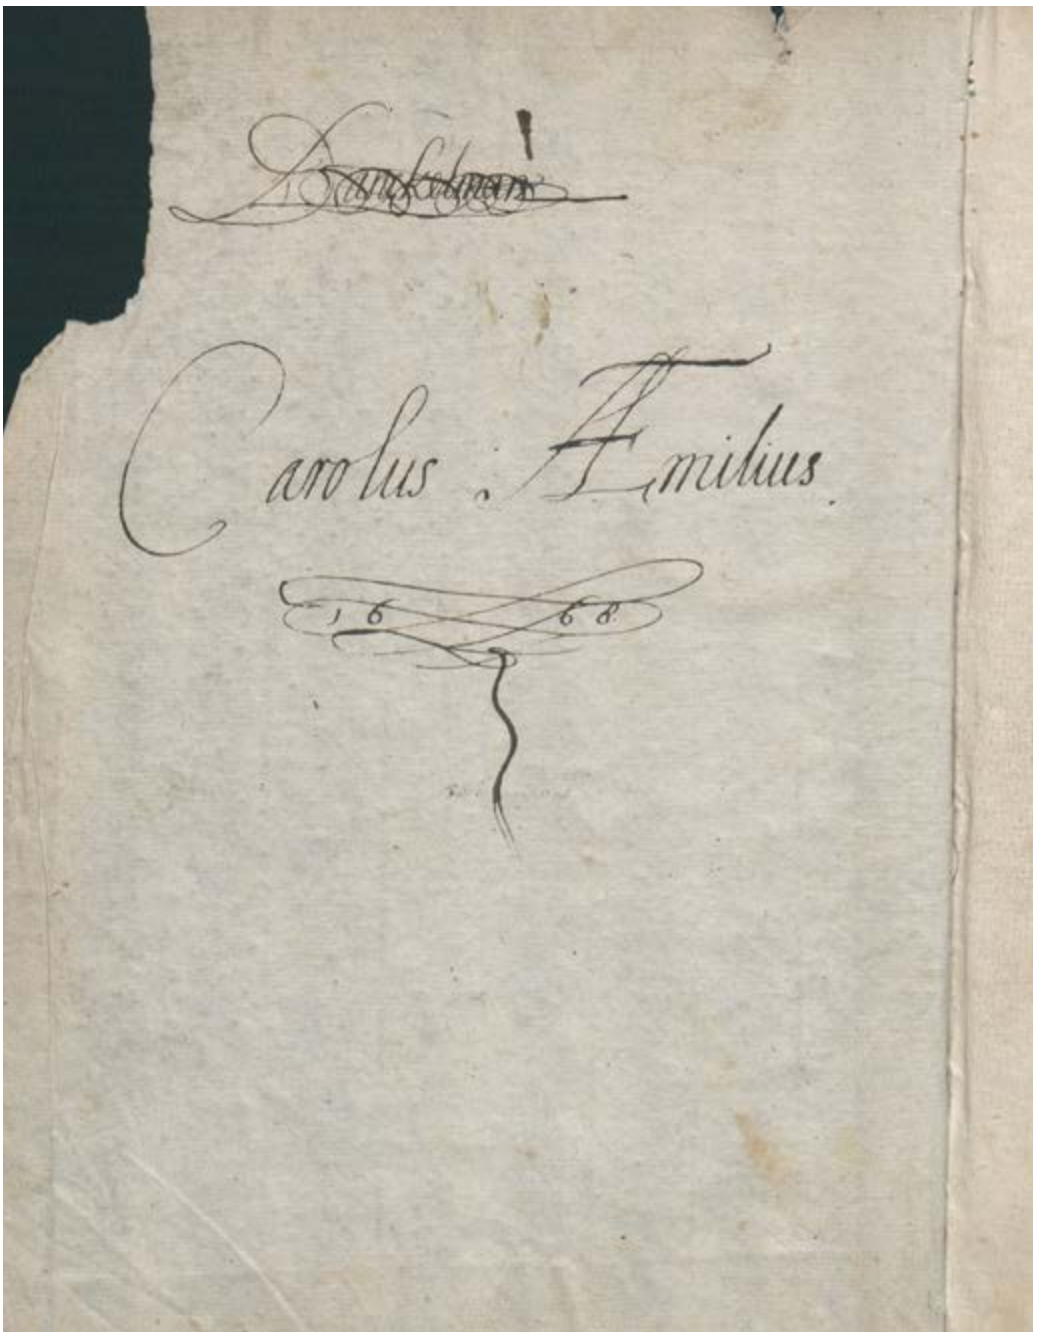 Danckelman
Carolus . Æmilius.
16 68.